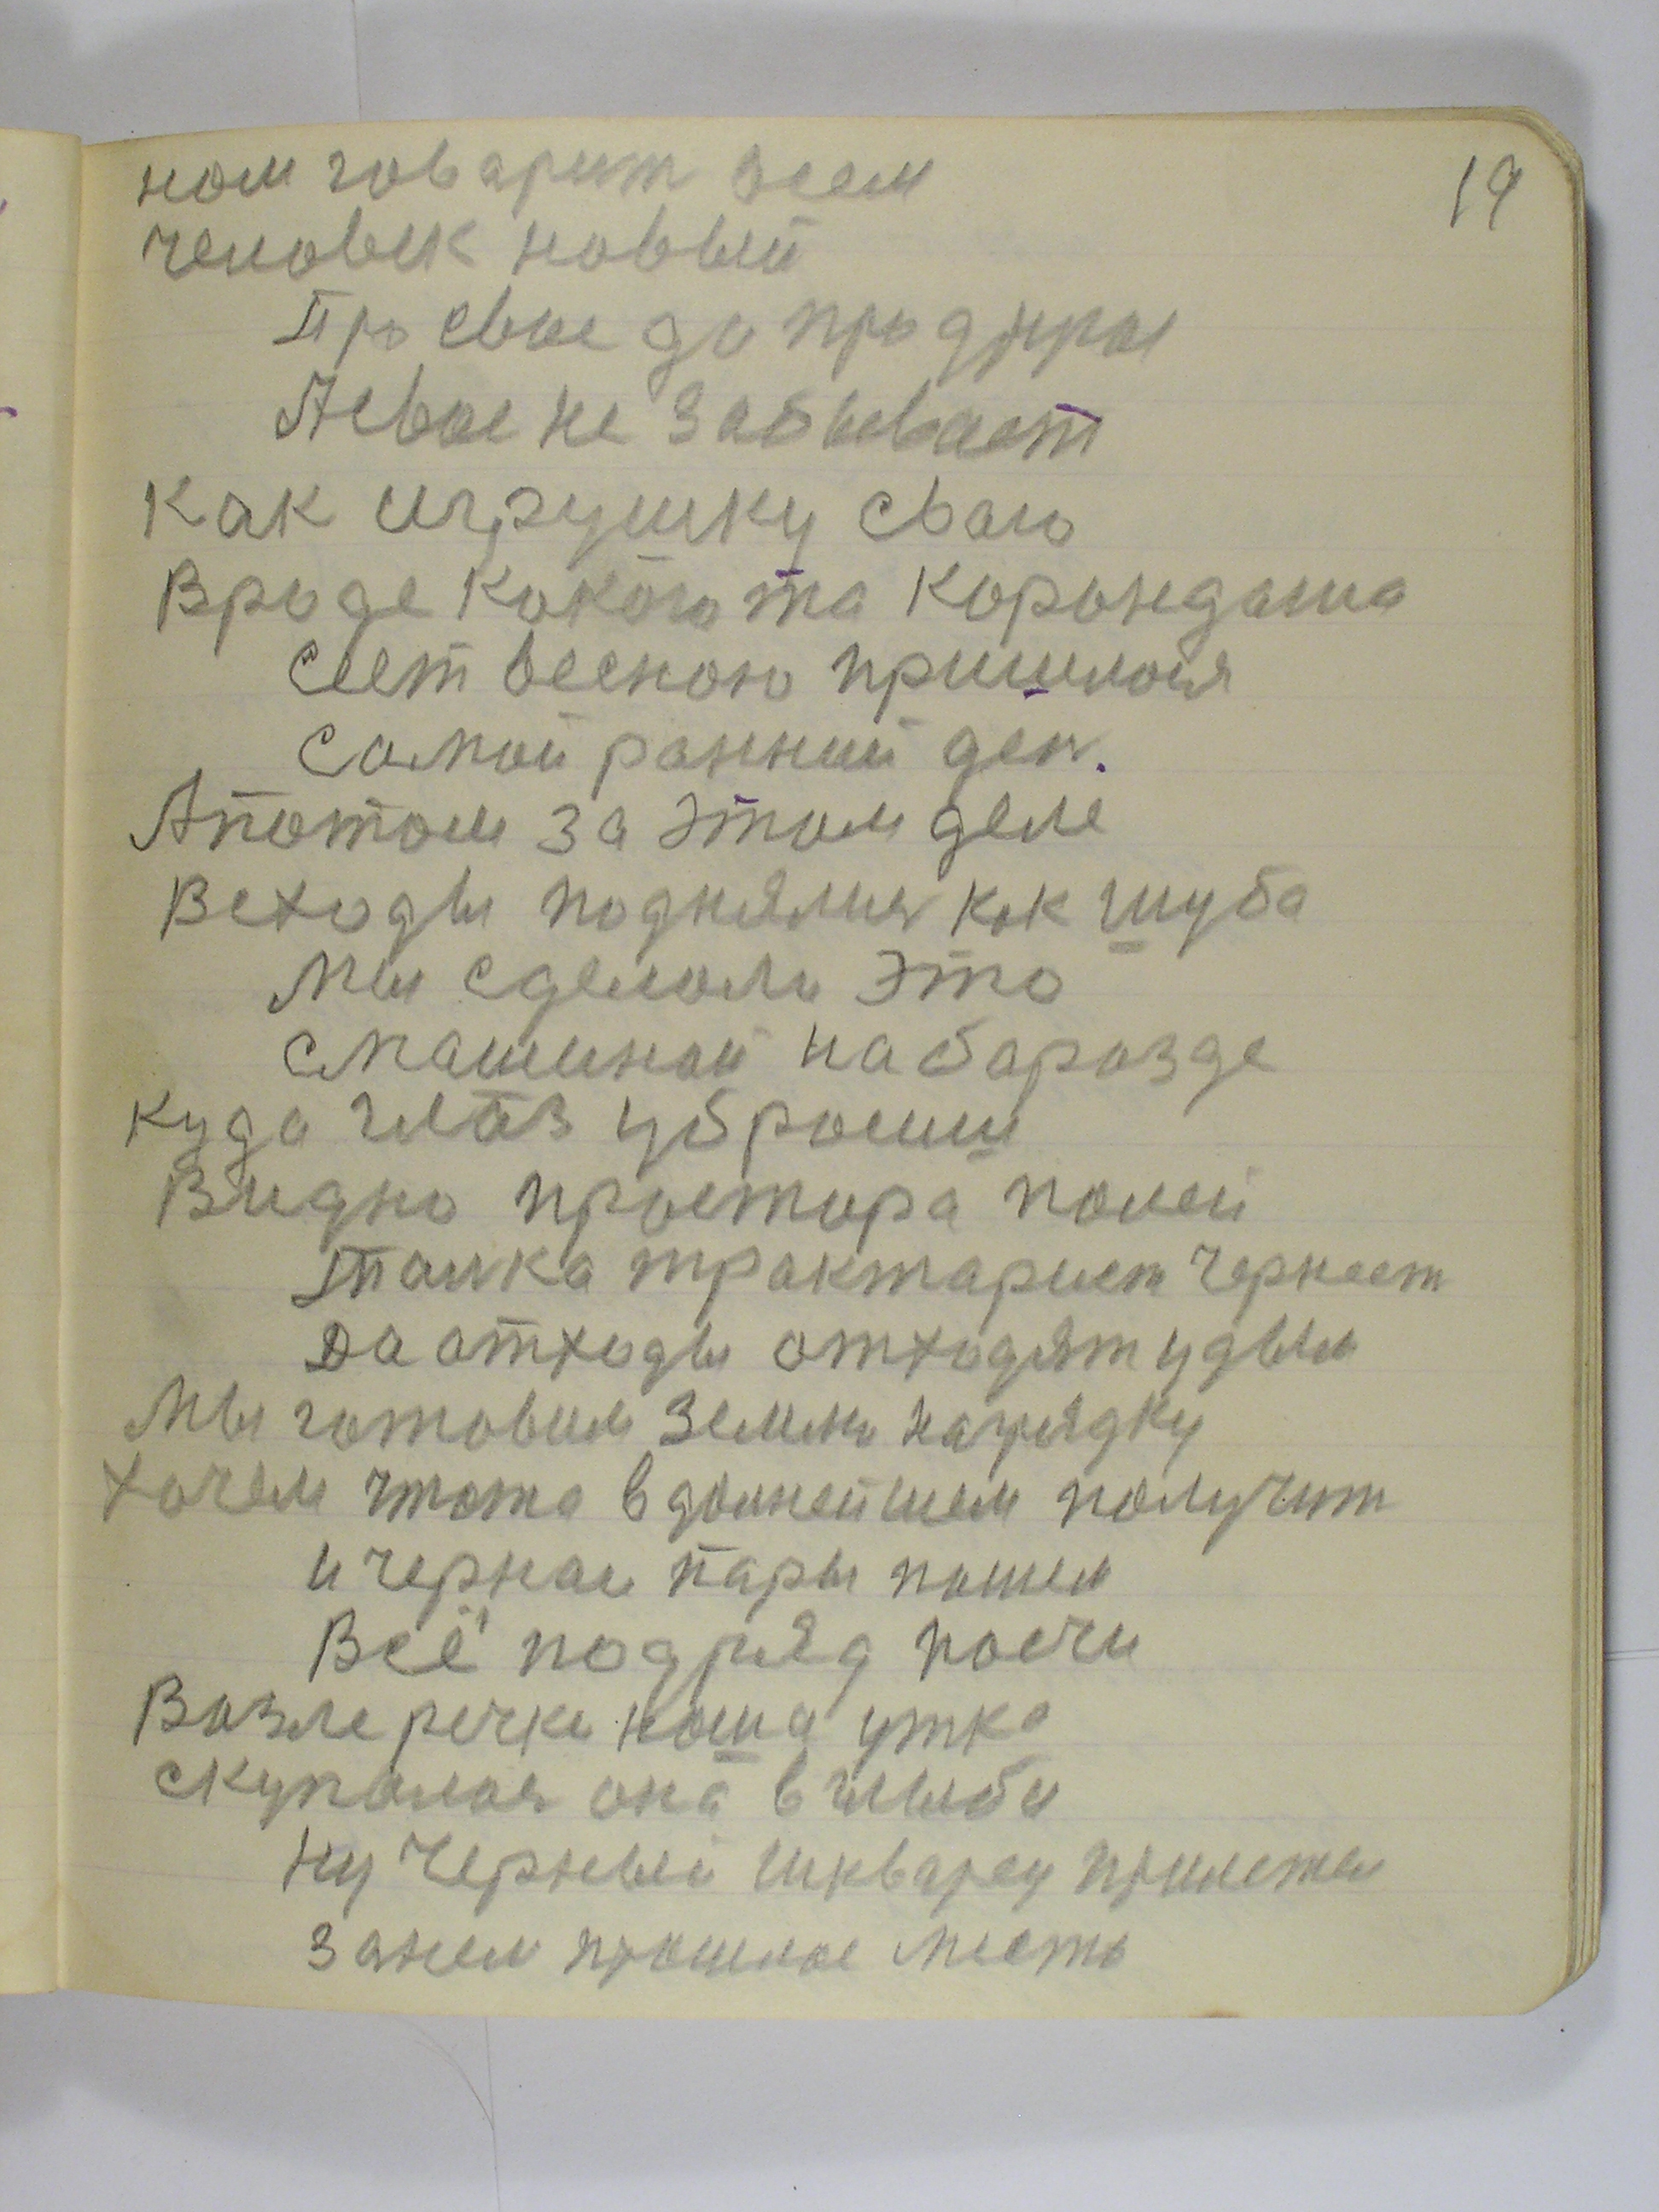 19
ном говарит всем
человек новый
Про свое да про дјеры
Асвое не забывает
Как игрушку сваю
Вроде кокого та корондаша
Сеет весною пришлося
Самой ранний ден.
Апотом за этом деле
Всходы поднялися как шуба
Мы сделоли это
Смашиной набарозде
куда глаз убросиш
Видно простора полей
Толка трактарист чернеет
Да отходы отходят уды
Мы готовим землю нагрядку
Хочем чтота вдолнейшем получит
и чернаи пары пошел
Всё подряд посчи
Возле речки наша утка
скупалоя она в глыби
Ну черный шкварец прилетел
Занел прошлое место